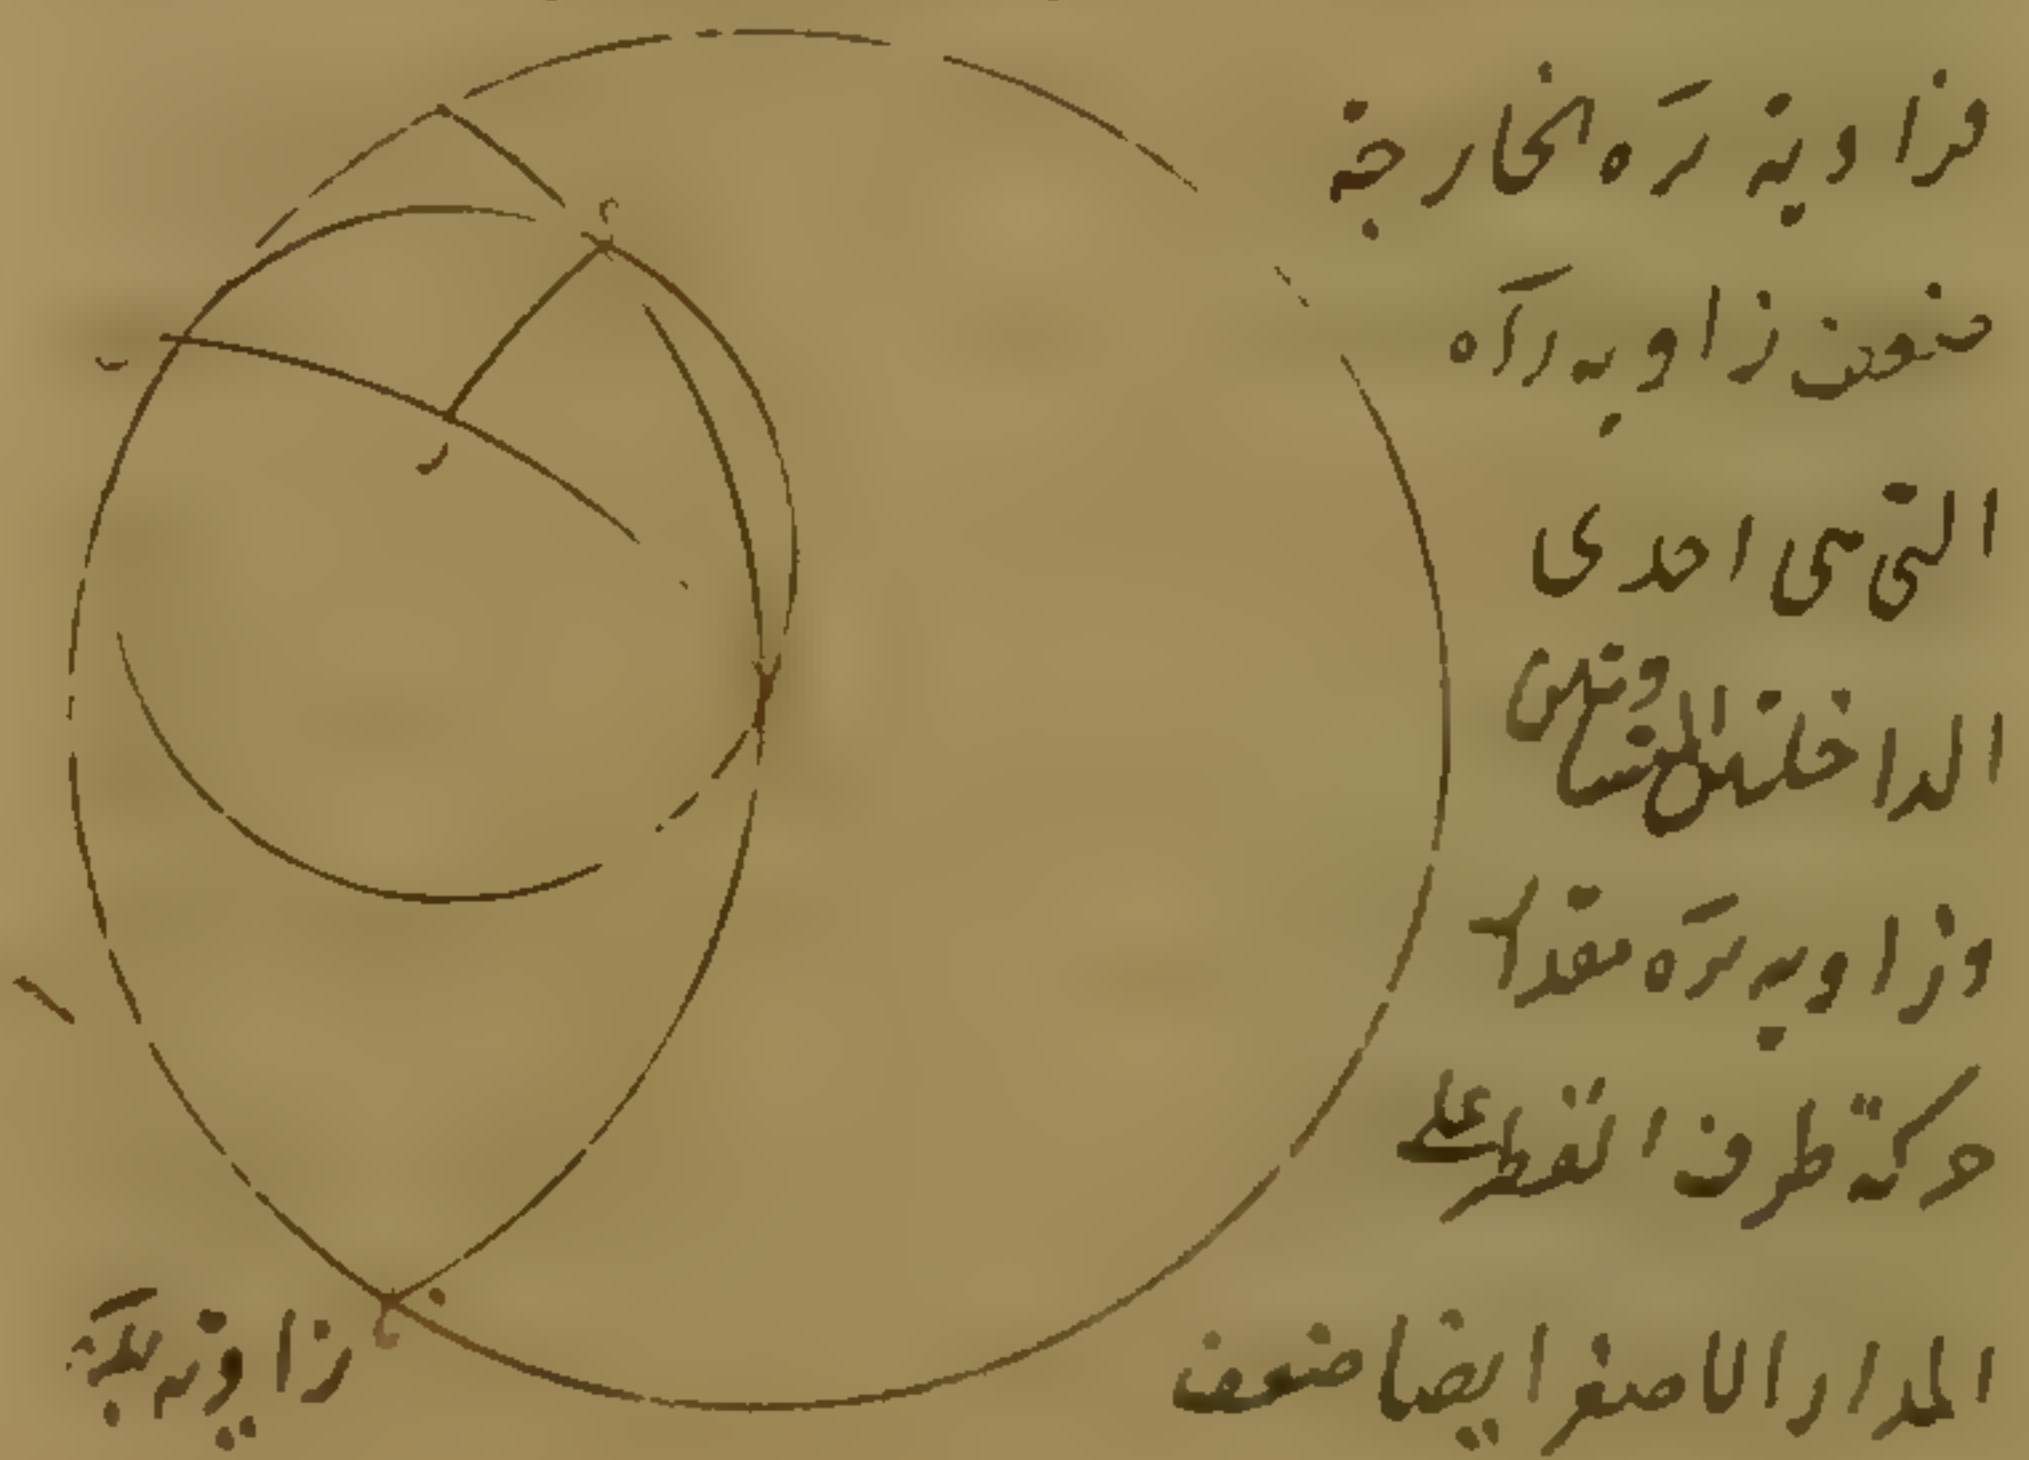 فزاوية ىرَه الخارجة
ضعف زاويه رَاه
التي هى احدى
الداخلتىن المتساوىتىن
وزاويه ىرَه مقدار
حركة طرف القطر على
المدار الاصغر ايضا ضعف
زاوية